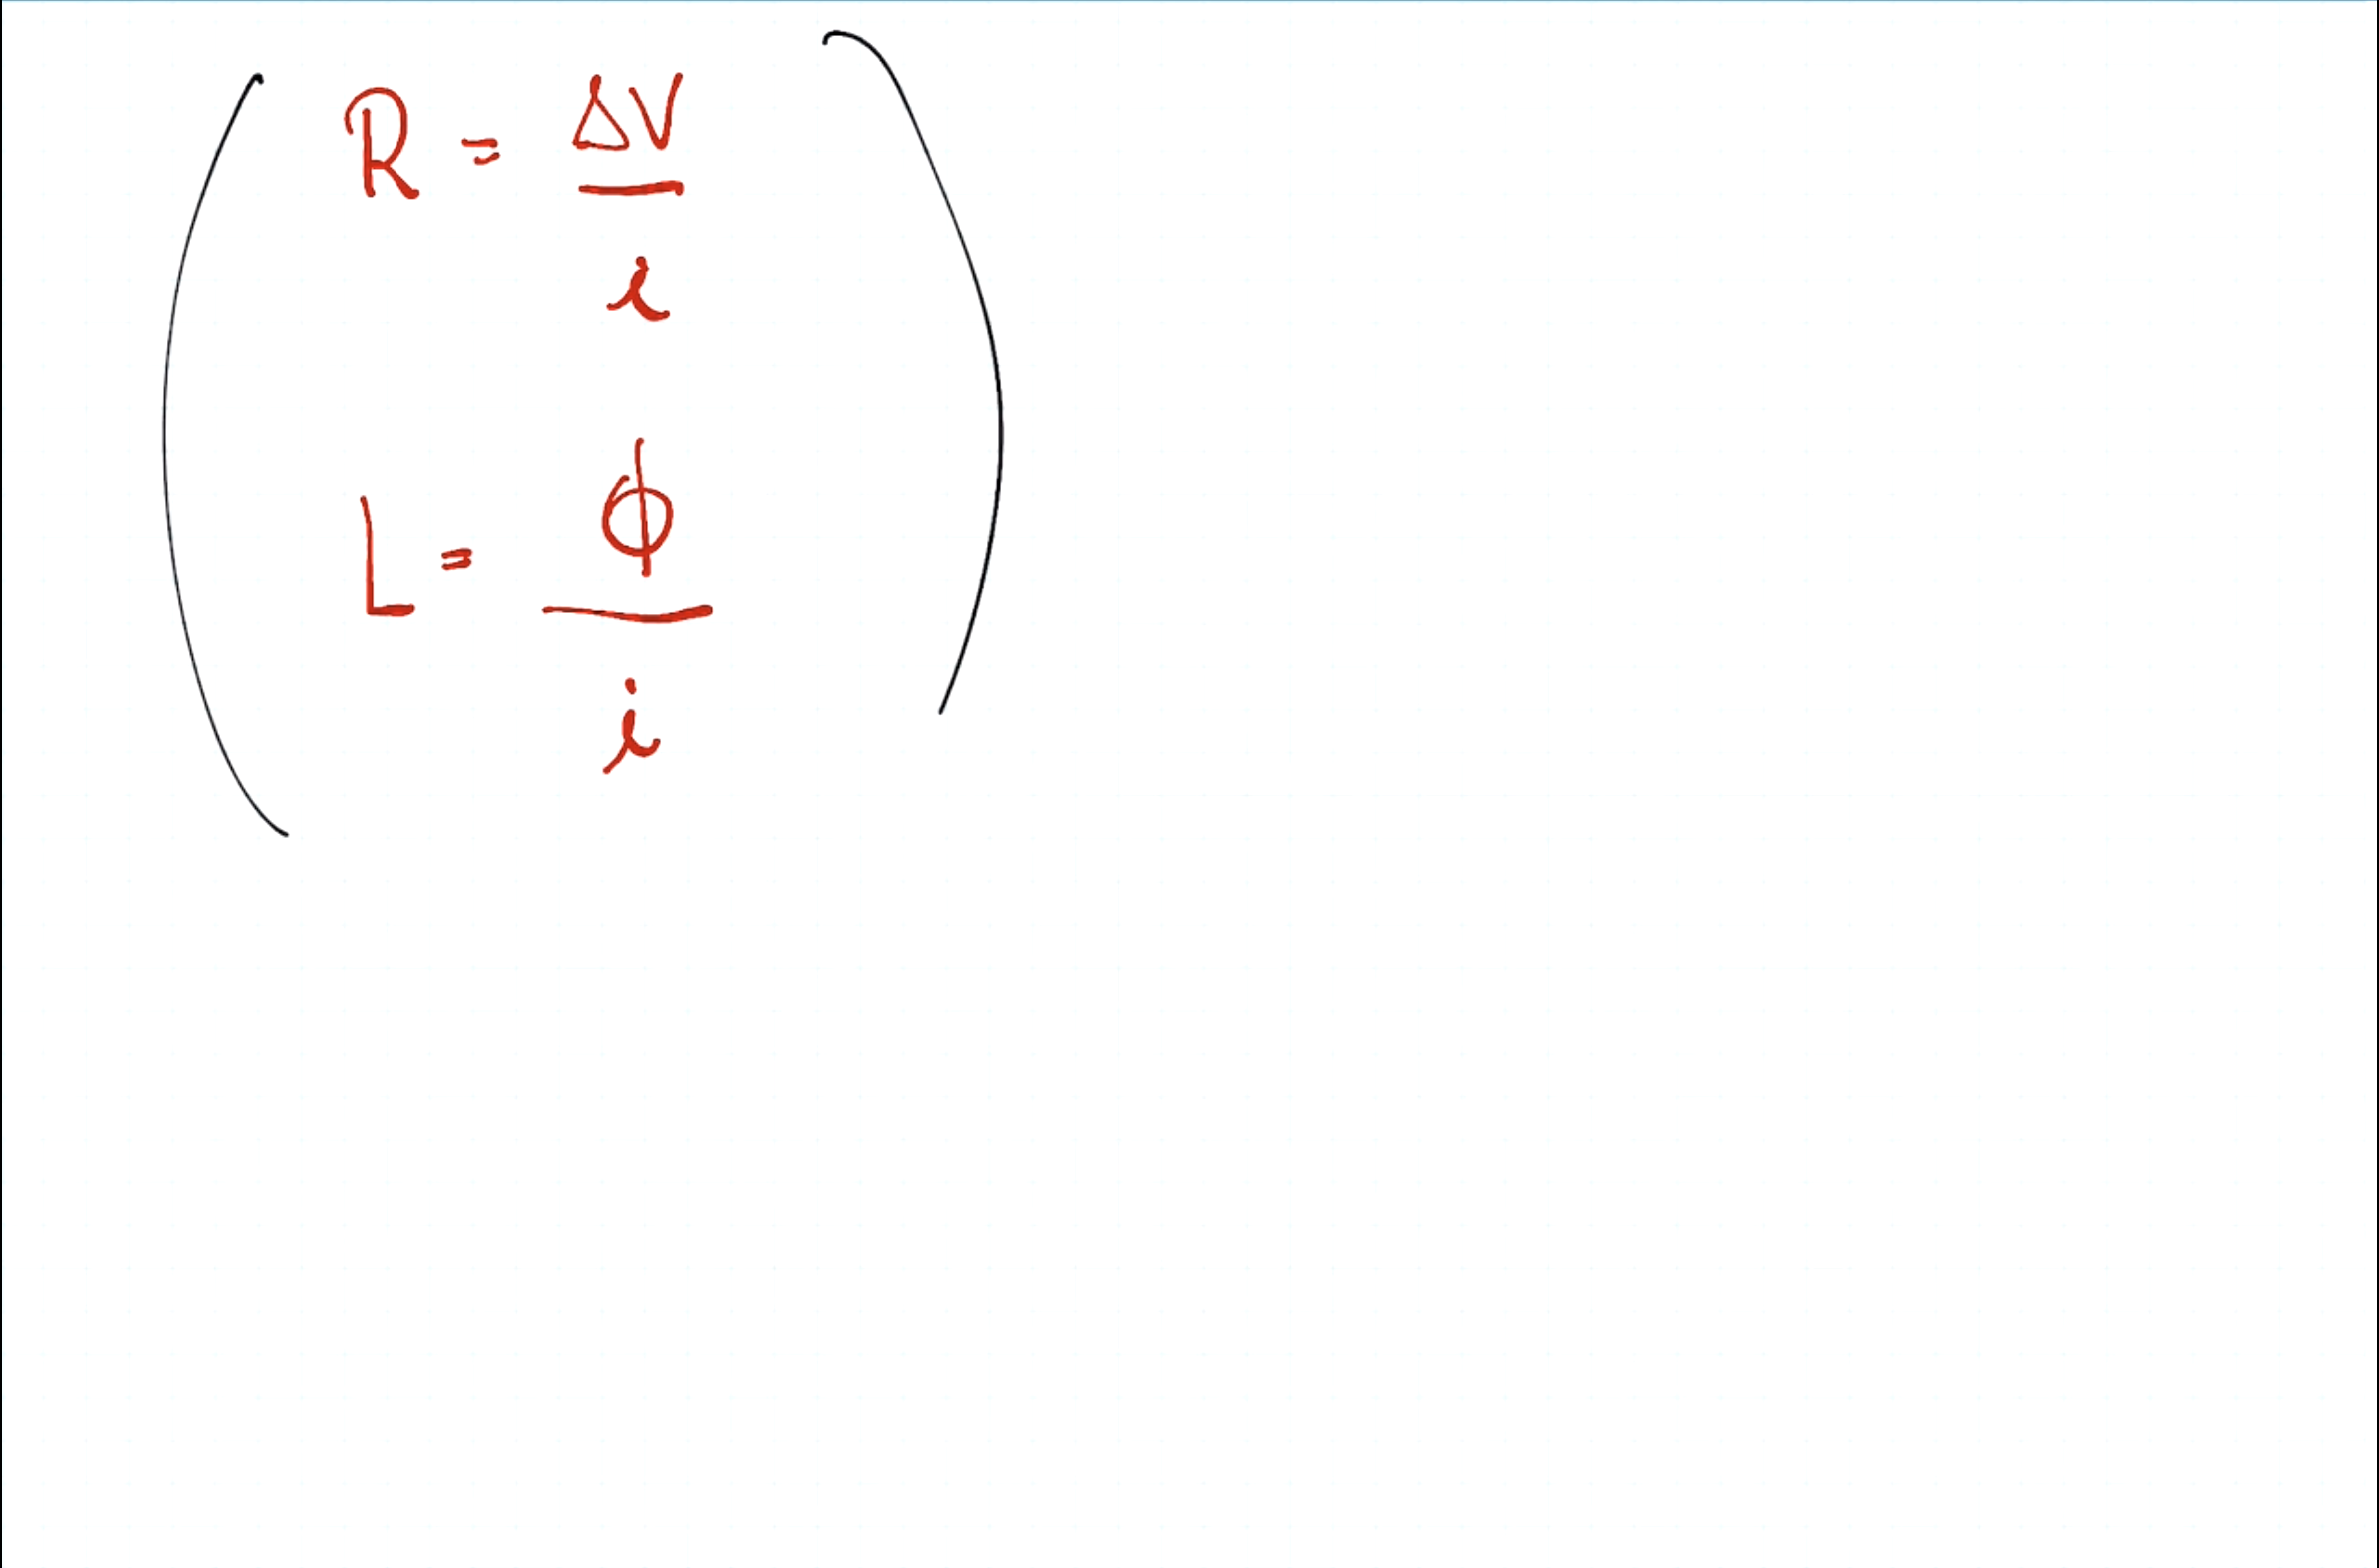 R = ΔV
i
L = ϕ
i